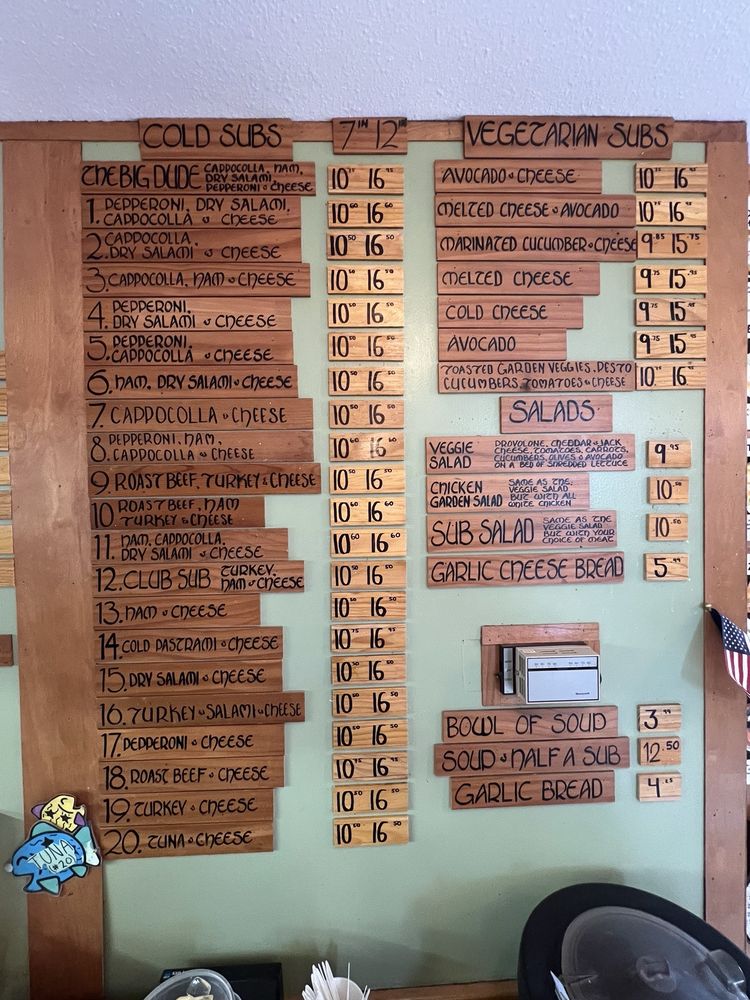 COLD SUBS 7 IN 12 IN
THE BIG DUDE CAPPOCOLLA, HAM,
DRY SALAMI,
PEPPERONI & CHEESE 10 16
1. PEPPERONI, DRY SALAMI,
CAPPOCOLLA & CHEESE 10⁶⁰ 16⁶⁰
2. CAPPOCOLLA,
DRY SALAMI & CHEESE 10⁵⁰ 16⁵⁰
3. CAPPOCOLLA, HAM & CHEESE 10⁵⁰ 16⁵⁰
4. PEPPERONI,
DRY SALAMI & CHEESE 10⁵⁰ 16⁵⁰
5. PEPPERONI,
CAPPOCOLLA & CHEESE 10⁵⁰ 16⁵⁰
6. HAM, DRY SALAMI & CHEESE 10⁵⁰ 16⁵⁰
7. CAPPOCOLLA & CHEESE 10⁵⁰ 16⁵⁰
8. PEPPERONI, HAM,
CAPPOCOLLA & CHEESE 10⁶⁰ 16⁶⁰
9. ROAST BEEF, TURKEY & CHEESE 10⁵⁰ 16⁵⁰
10. ROAST BEEF, HAM
TURKEY & CHEESE 10⁶⁰ 16⁶⁰
11. HAM, CAPPOCOLLA,
DRY SALAMI & CHEESE 10⁶⁰ 16⁶⁰
12. CLUB SUB TURKEY,
HAM & CHEESE 10⁵⁰ 16⁵⁰
13. HAM & CHEESE 10⁵⁰ 16⁵⁰
14. COLD PASTRAMI & CHEESE 10⁷⁵ 16⁹⁵
15. DRY SALAMI & CHEESE 10⁵⁰ 16⁵⁰
16. TURKEY & SALAMI & CHEESE 10⁵⁰ 16⁵⁰
17. PEPPERONI & CHEESE 10⁵⁰ 16⁵⁰
18. ROAST BEEF & CHEESE 10⁷⁵ 16⁹⁵
19. TURKEY & CHEESE 10⁵⁰ 16⁵⁰
20. TUNA & CHEESE 10⁵⁰ 16⁵⁰
TUNA
(#20)
VEGETARIAN SUBS
AVOCADO & CHEESE 10 16
MELTED CHEESE & AVOCADO 10 16
MARINATED CUCUMBER & CHEESE 9⁸⁵ 15⁷⁵
MELTED CHEESE 9⁷⁵ 15⁹⁵
COLD CHEESE 9⁷⁵ 15⁹⁵
AVOCADO 9⁷⁵ 15⁹⁵
TOASTED GARDEN VEGGIES, PESTO
CUCUMBERS, TOMATOES & CHEESE 10 16
SALADS
VEGGIE SALAD PROVOLONE, CHEDDAR & JACK
CHEESE, TOMATOES, CARROTS,
CUCUMBERS, OLIVES & AVOCADO
ON A BED OF SHREDDED LETTUCE 9⁹⁵
CHICKEN GARDEN SALAD SAME AS THE
VEGGIE SALAD
BUT WITH ALL
WHITE CHICKEN 10⁵⁰
SUB SALAD SAME AS THE
VEGGIE SALAD
BUT WITH YOUR
CHOICE OF MEAT 10⁵⁰
GARLIC CHEESE BREAD 5
Honeywell
BOWL OF SOUP 3
SOUP & HALF A SUB 12.50
GARLIC BREAD 4